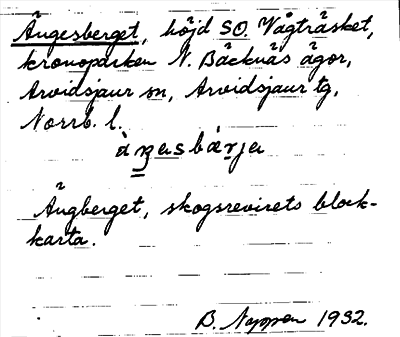 Ängesberget, höjd SO. Vågträsket,
kronoparken N. Bäcknäs ägor,
Arvidsjaur sn, Arvidsjaur tg,
Norrb. l.
àŋasbärja
Ängberget, skogsrevirets block-
karta.
B. 1932.